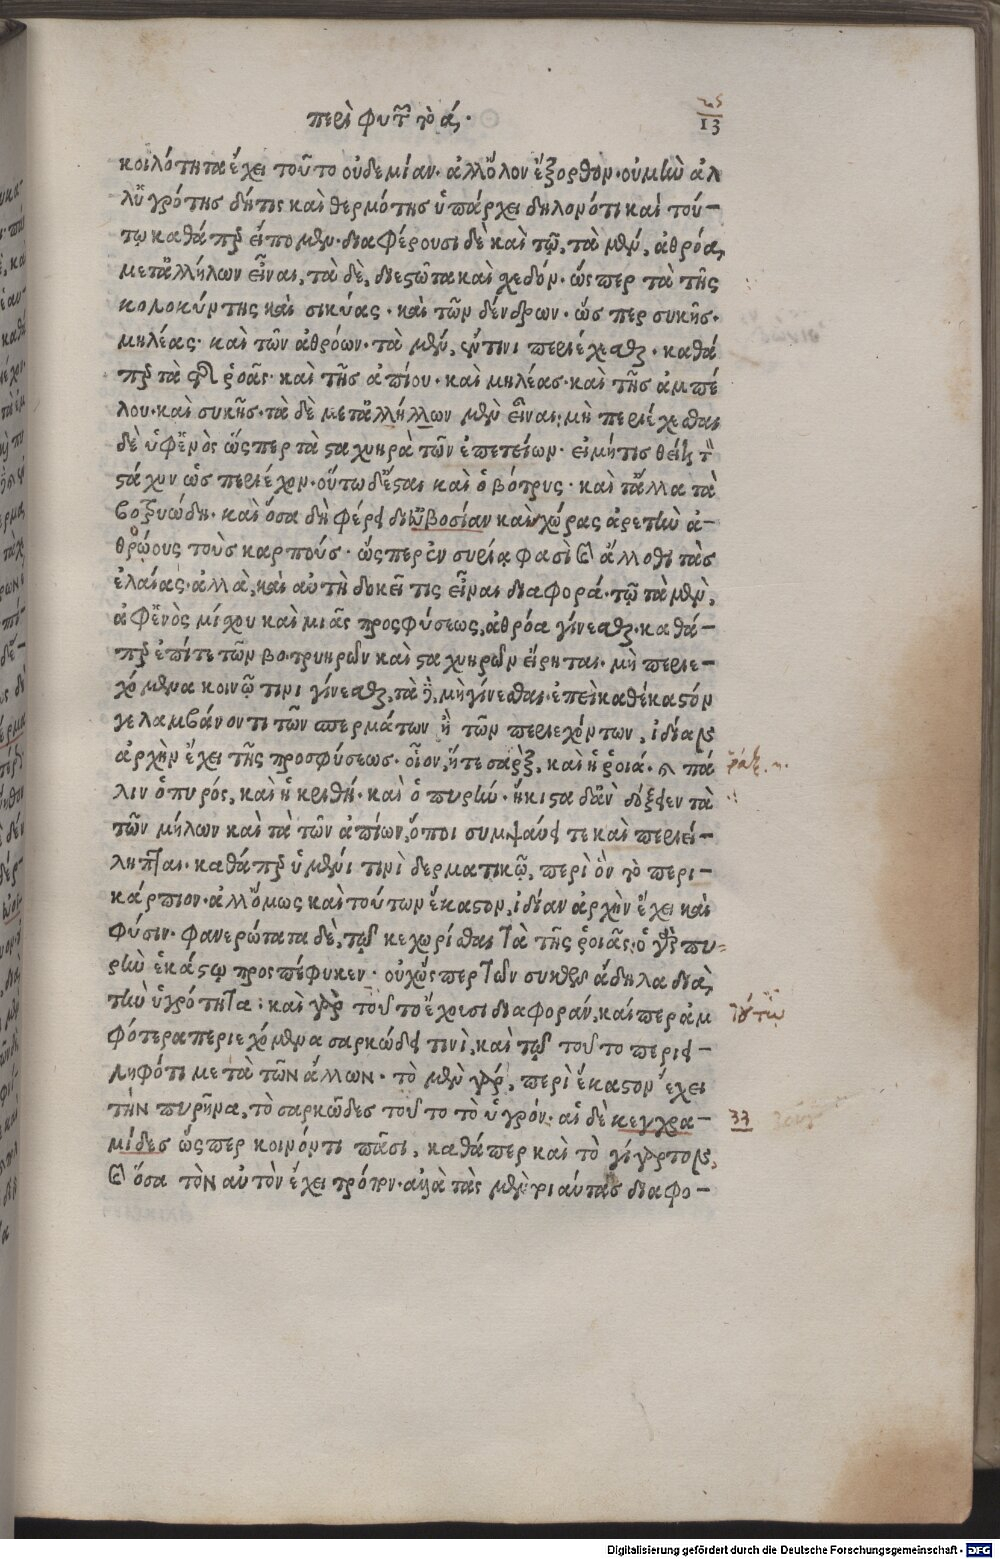 περὶ φυτῶν τὸ ά.
13
κοιλότητα ἔχει τοῦτο οὐδεμίαν· ἀλλ' ὅλον ἔξορθον· οὐ μὴν ἀλ
λ' ὑγρότης δή τις καὶ θερμότης ὑπάρχει δηλονότι καὶ τού-
τῳ καθάπερ εἴπομεν· διαφέρουσι δὲ καὶ τῷ, τὰ μὲν, ἀθρόα,
μετ' ἀλλήλων εἶναι, τὰ δὲ, διεστῶτα καὶ χεδόν. ὥσπερ τὰ τῆς
κολοκύντης καὶ σικύας · καὶ τῶν δένδρων · ὥσπερ συκῆς·
μηλέας· καὶ τῶν ἀθρόων· τὰ μὲν, ἔν τινι περιέχεσθαι · καθά
περ τὰ τῆς ῥοᾶς· καὶ τῆς ἀπίου · καὶ μηλέας· καὶ τῆς ἀμπέ
λου· καὶ συκῆς· τὰ δὲ μετ' ἀλλήλων μὲν εἶναι, μὴ περιέχεσθαι
δὲ ὑφ' ἑνὸς ὥσπερ τὰ σταχυηρὰ τῶν ἐπετείων· εἰ μή τις θείη τὸν
στάχυν ὡς περιέχον· οὕτω δ' ἔσται καὶ ὁ βότρυς · καὶ τἄλλα τὰ
βοτρυώδη· καὶ ὅσα δὴ φέρει δι' εὐβοσίαν καὶ χώρας ἀρετὴν ἀ-
θρόους τοὺς καρπούς · ὥσπερ ἐν συρίᾳ φασὶ καὶ ἄλλοθι τὰς
ἐλαίας· ἀλλὰ, καὶ αὐτὴ δοκεῖ τις εἶναι διαφορά· τῷ τὰ μὲν,
ἀφ' ἑνὸς μίχου καὶ μιᾶς προσφύσεως, ἀθρόα γίνεσθαι· καθά-
περ ἐπί τε τῶν βοτρυηρῶν καὶ σταχυηρῶν εἴρηται· μὴ περιε-
χόμενα κοινῷ τινι γίνεσθαι, τὰ δὲ, μὴ γίνεσθαι· ἐπεὶ καθ' ἕκαστόν
γε λαμβάνοντι τῶν σπερμάτων ἢ τῶν περιεχόντων, ἰδίαν
ἀρχὴν ἔχει τῆς προσφύσεως· οἷον, ἥ τε σὰρξ, καὶ ἡ ῥοιά· καὶ πά
λιν ὁ πυρός, καὶ ἡ κριθή· καὶ ὁ πυρὴν· ἥκιστα δ' ἂν δόξειεν τὰ
τῶν μήλων καὶ τὰ τῶν ἀπίων, ὅποι συμψαύει τε καὶ περιεί-
ληπται· καθάπερ ὑμένι τινὶ δερματικῷ, περὶ ὃν τὸ περι-
κάρπιον· ἀλλ' ὅμως καὶ τούτων ἕκαστον, ἰδίαν ἀρχὴν ἔχει καὶ
φύσιν· φανερώτατα δὲ, τῷ κεχωρίσθαι τὰ τῆς ῥοιᾶς· ὁ γὰρ πυ-
ρὴν ἑκάστῳ προσπέφυκεν· οὐχ ὥσπερ τῶν συκῶν ἄδηλα διὰ,
τὴν ὑγρότητα· καὶ γὰρ τούτο ἔχουσι διαφοράν, καίπερ ἀμ
φότερα περιεχόμενα σαρκώδει τινὶ, καὶ τῷ τούτο περιει-
ληφότι μετὰ τῶν ἄλλων· τὸ μὲν γὰρ, περὶ ἕκαστον ἔχει
τὴν πυρῆνα, τὸ σαρκῶδες τούτο τὸ ὑγρόν· αἱ δὲ κεγχρα-
μίδες ὥσπερ κοινόν τι πᾶσι, καθάπερ καὶ τὸ γίγαρτον,
καὶ ὅσα τὸν αὐτὸν ἔχει τρόπον· ἀλλὰ τὰς μὲν τοιαύτας διαφο-
33